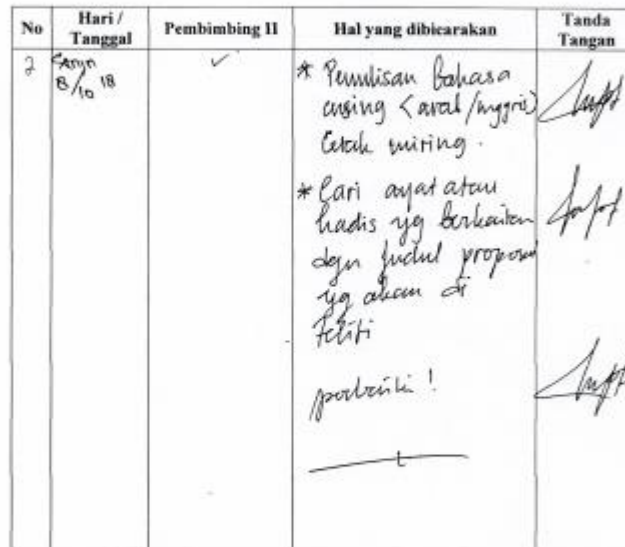 No Hari / Tanggal Pembimbing II Hal yang dibicarakan Tanda Tangan
2 Senin ✓ * Penulisan bahasa
8/10 18 asing (arab/inggris)
Cetak miring.
* Cari ayat atau
hadis yg berkaitan
dgn judul proposal
yg akan di
teliti
perbaiki !